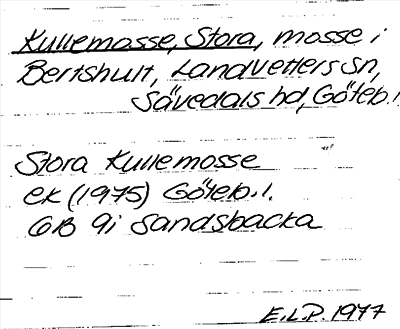 Kullemosse, Stora, mosse i
Bertshult, Landvetters sn,
Sävedals hd, Göteb. l.
Stora Kullemosse
ek (1975) Göteb. l.
6B 9i Sandsbacka
E.L.P. 1977